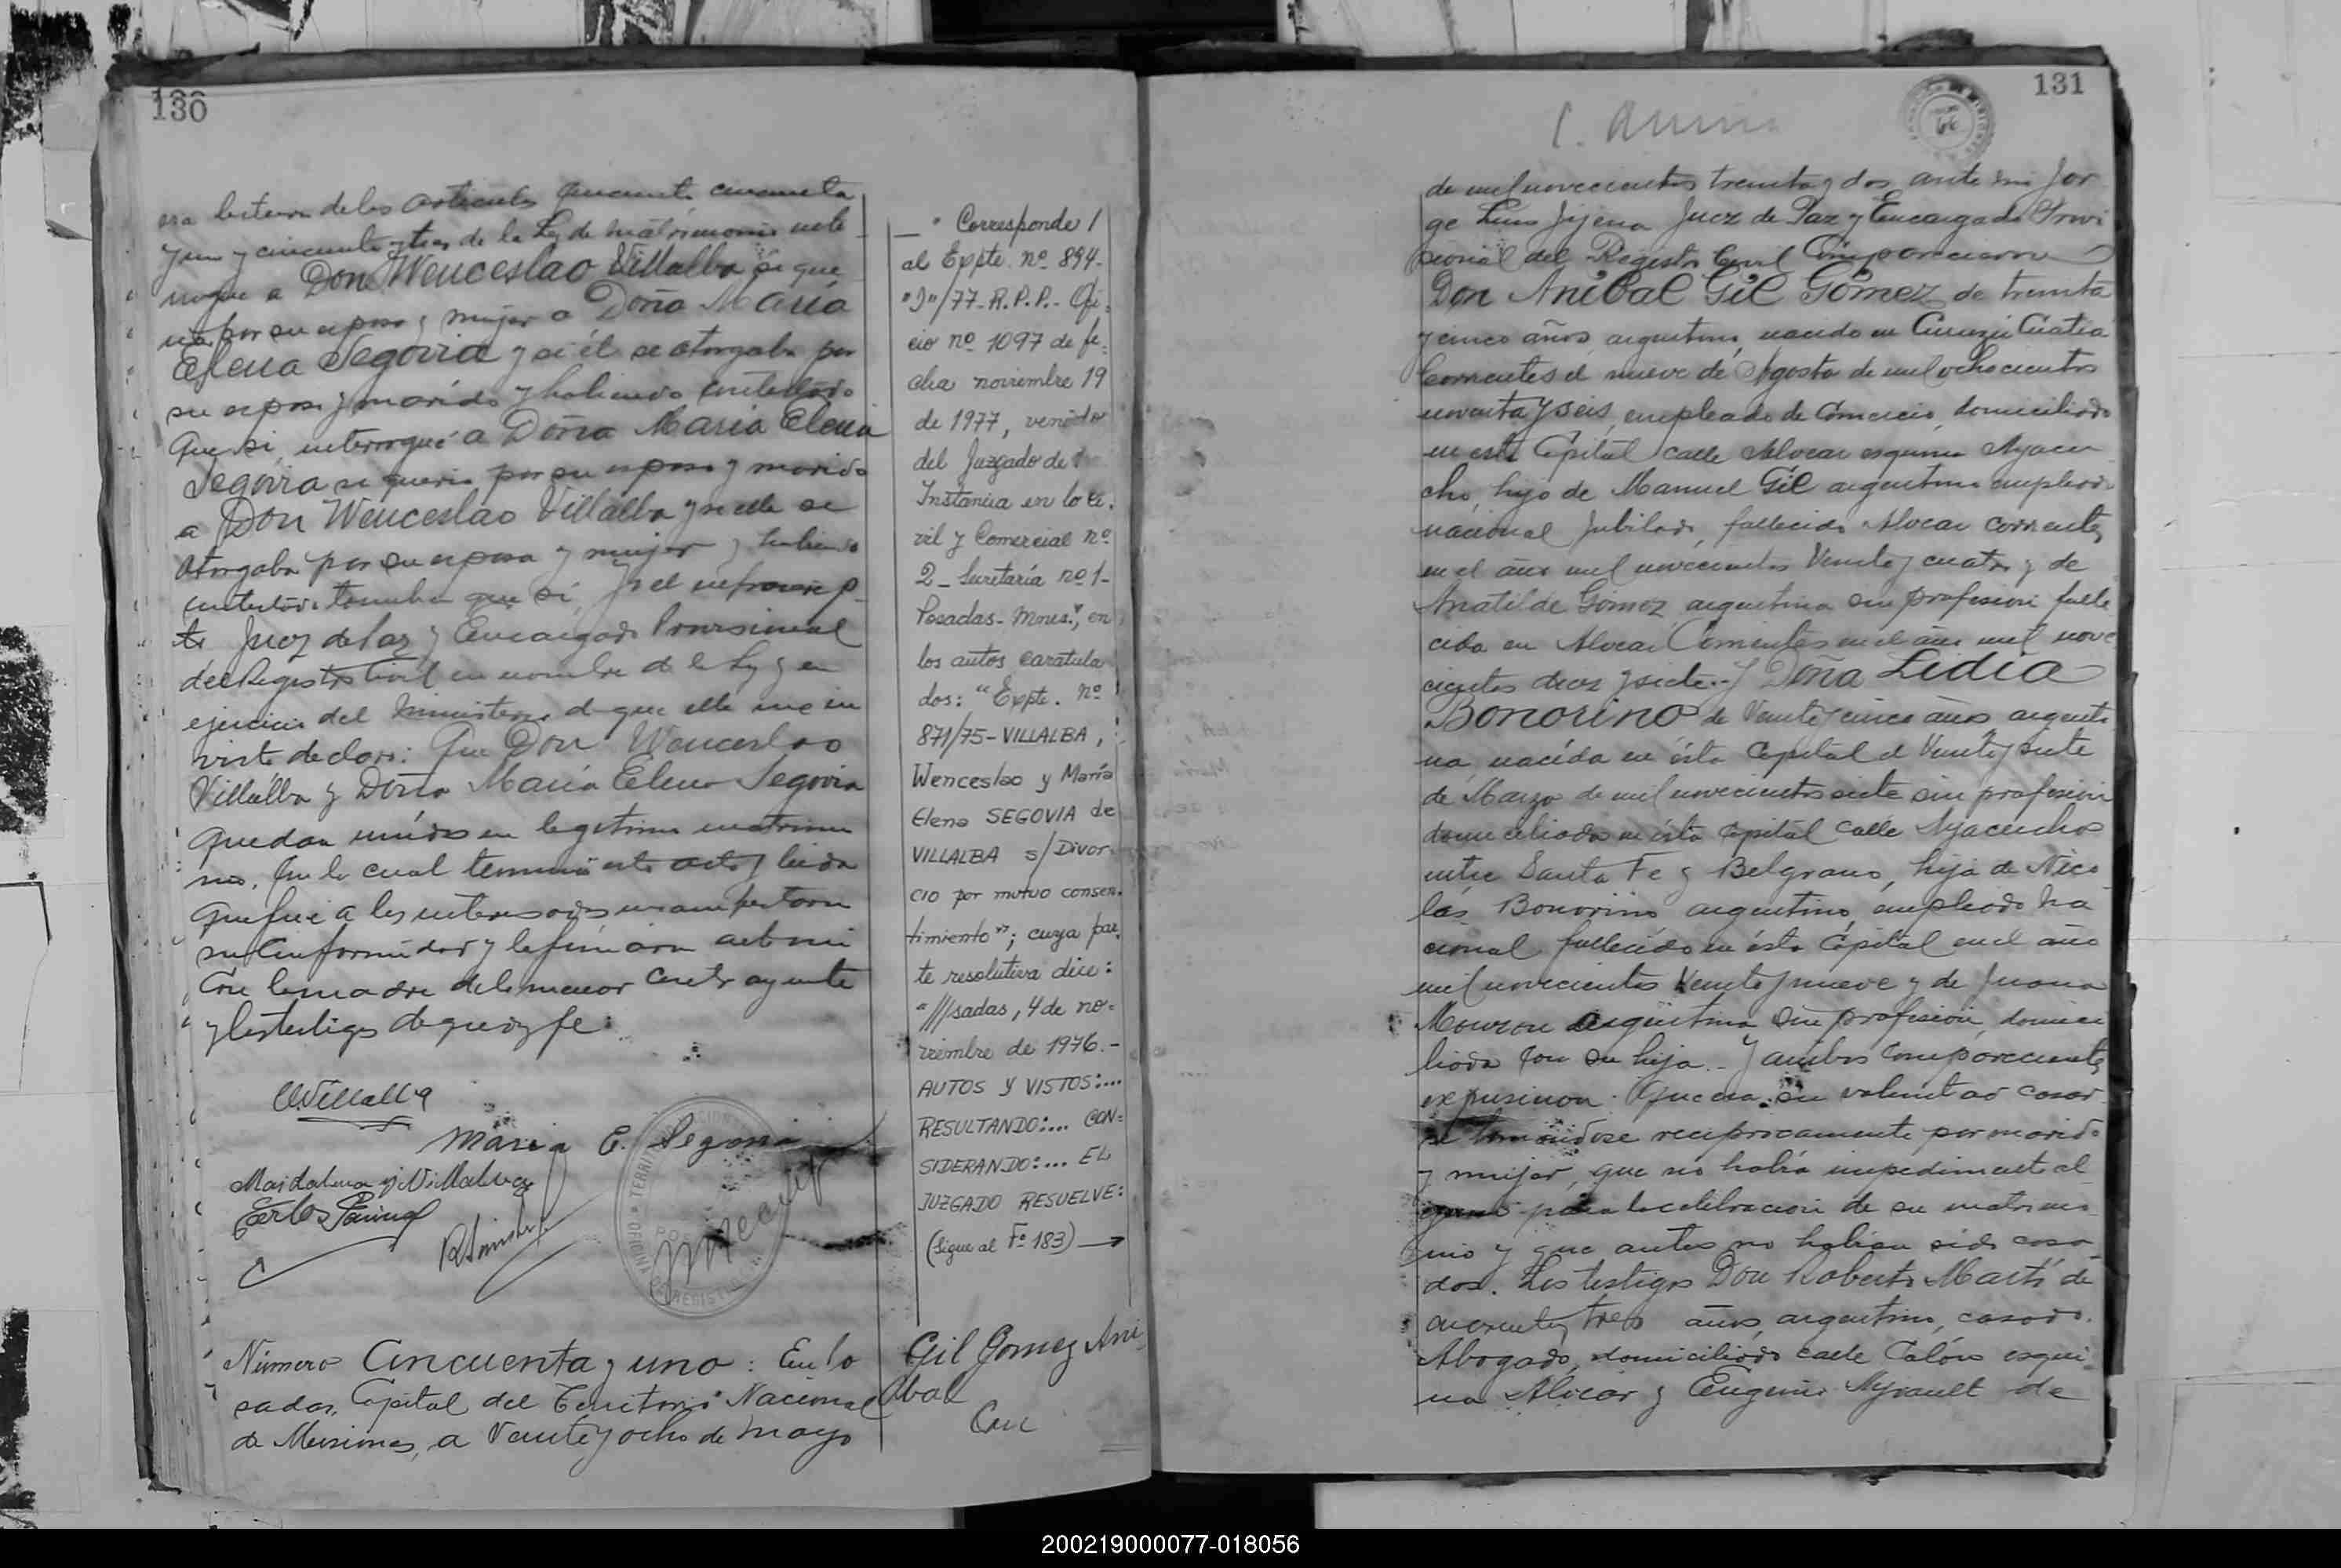 130
era lectura de los articulos cincuenta cincuenta
y un y cincuenta y tres de la Ley de matrimonio
a Don Wenceslao Villalba si que
ria por su esposa y mujer a Doña María
Elena Segovia y si él se otorgaba por
su esposo y marido y habiendo contestado
que si, interrogué a Doña María Elena
Segovia si queria por su esposo y marido
a Don Wenceslao Villalba y si ella se
otorgaba por su esposa y mujer y habiendo
contestado tambien que si, Yo el infrascrip
to Juez de Paz y Encargado Provisional
del Registro Civil en nombre de la Ley y en
ejercicio del ministerio de que ella me in
viste declaro: Que Don Wenceslao
Villalba y Doña María Elena Segovia
quedan unidos en legitimo matrimo
nio. Con lo cual terminó este acto y leida
que fué a los interesados manifestaron
su conformidad y la firmaron ante mi
con la madre de la menor contrayente
y los testigos de que doy fe:
W Villalba
Maria E. Segovia
OFICINA REGISTRO
Número Cincuenta y uno: En Po
sadas, Capital del Territorio Nacional
de Misiones, a Veinte y ocho de mayo
" Corresponde /
al Expte. nº 894-
"J"/77-R.P.P.- Ofi-
cio nº 1097 de fe-
cha noviembre 19
de 1977, venido
del Juzgado de 1ª
Instancia en lo Ci-
vil y Comercial nº
2 - Secretaría nº 1-
Posadas- Mnes., en
los autos caratula
dos: "Expte. nº
871/75-VILLALBA,
Wenceslao y María
Elena SEGOVIA de
VILLALBA s/Divor-
cio por mutuo consen-
timiento"; cuya par-
te resolutiva dice:
"///sadas, 4 de no-
viembre de 1976.-
AUTOS Y VISTOS:...
RESULTANDO:... CON-
SIDERANDO:... EL
JUZGADO RESUELVE:
(sigue al Fº 183) →
Gil Gomez Ani
bal
Con
131
de mil novecientos treinta y dos, ante mi Jor
ge Luis Jijena Juez de Paz y Encargado Provi
sional del Registro Civil Comparecieron
Don Anibal Gil Gómez de treinta
y cinco años, argentino, nacido en Curuzú Cuatia
Corrientes el nueve de Agosto de mil ochocientos
noventa y seis, empleado de Comercio, domiciliado
en esta Capital calle Alvear esquina Ayacu
cho, hijo de Manuel Gil argentino empleado
nacional Jubilado, fallecido Alvear Corrientes
en el año mil novecientos Veinte y cuatro y de
Matilde Gómez argentina sin profesion falle
cida en Alvear Corrientes en el año mil nove
cientos diez y siete.- Y Doña Lidia
Bonorino de Veinte y cinco años argenti
na, nacida en ésta Capital el Veinte y siete
de Marzo de mil novecientos siete sin profesion
domiciliada en ésta Capital calle Ayacucho
entre Santa Fe y Belgrano, hija de Nico
lás Bonorino argentino, empleado na
cional fallecido en ésta Capital en el año
mil novecientos Veinte y nueve y de Juana
argentina sin profesion, domici
liada con su hija.- Y ambos comparecientes
expusieron: Que era su voluntad casar
se tomandose reciprocamente por marido
y mujer, que no habia impedimento al
guno para la celebracion de su matrimo
nio y que antes no habian sido casa
dos. Los testigos Don Roberto Martí de
cuarenta y tres años, argentino, casado,
Abogado, domiciliado calle Colón esqui
na Alvear y Eugenio Ayrault de
200219000077-018056